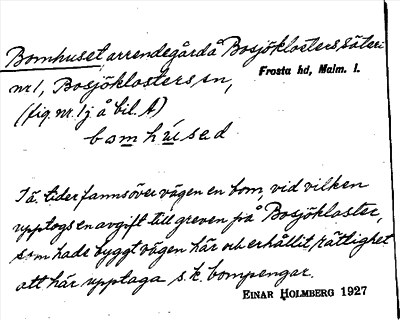 Bomhuset, arrendegård å Bosjöklosters säteri
nr 1, Bosjöklosters sn,
Frosta hd, Malm. l.
(fig. nr. 1j å bil. A)
bomhúsed
I ä. tider fanns över vägen en bom, vid vilken
upptogs en avgift till greven på Bosjökloster,
som hade byggt vägen här och erhållit rättighet
att här upptaga s.k. bompengar.
EINAR HOLMBERG 1927